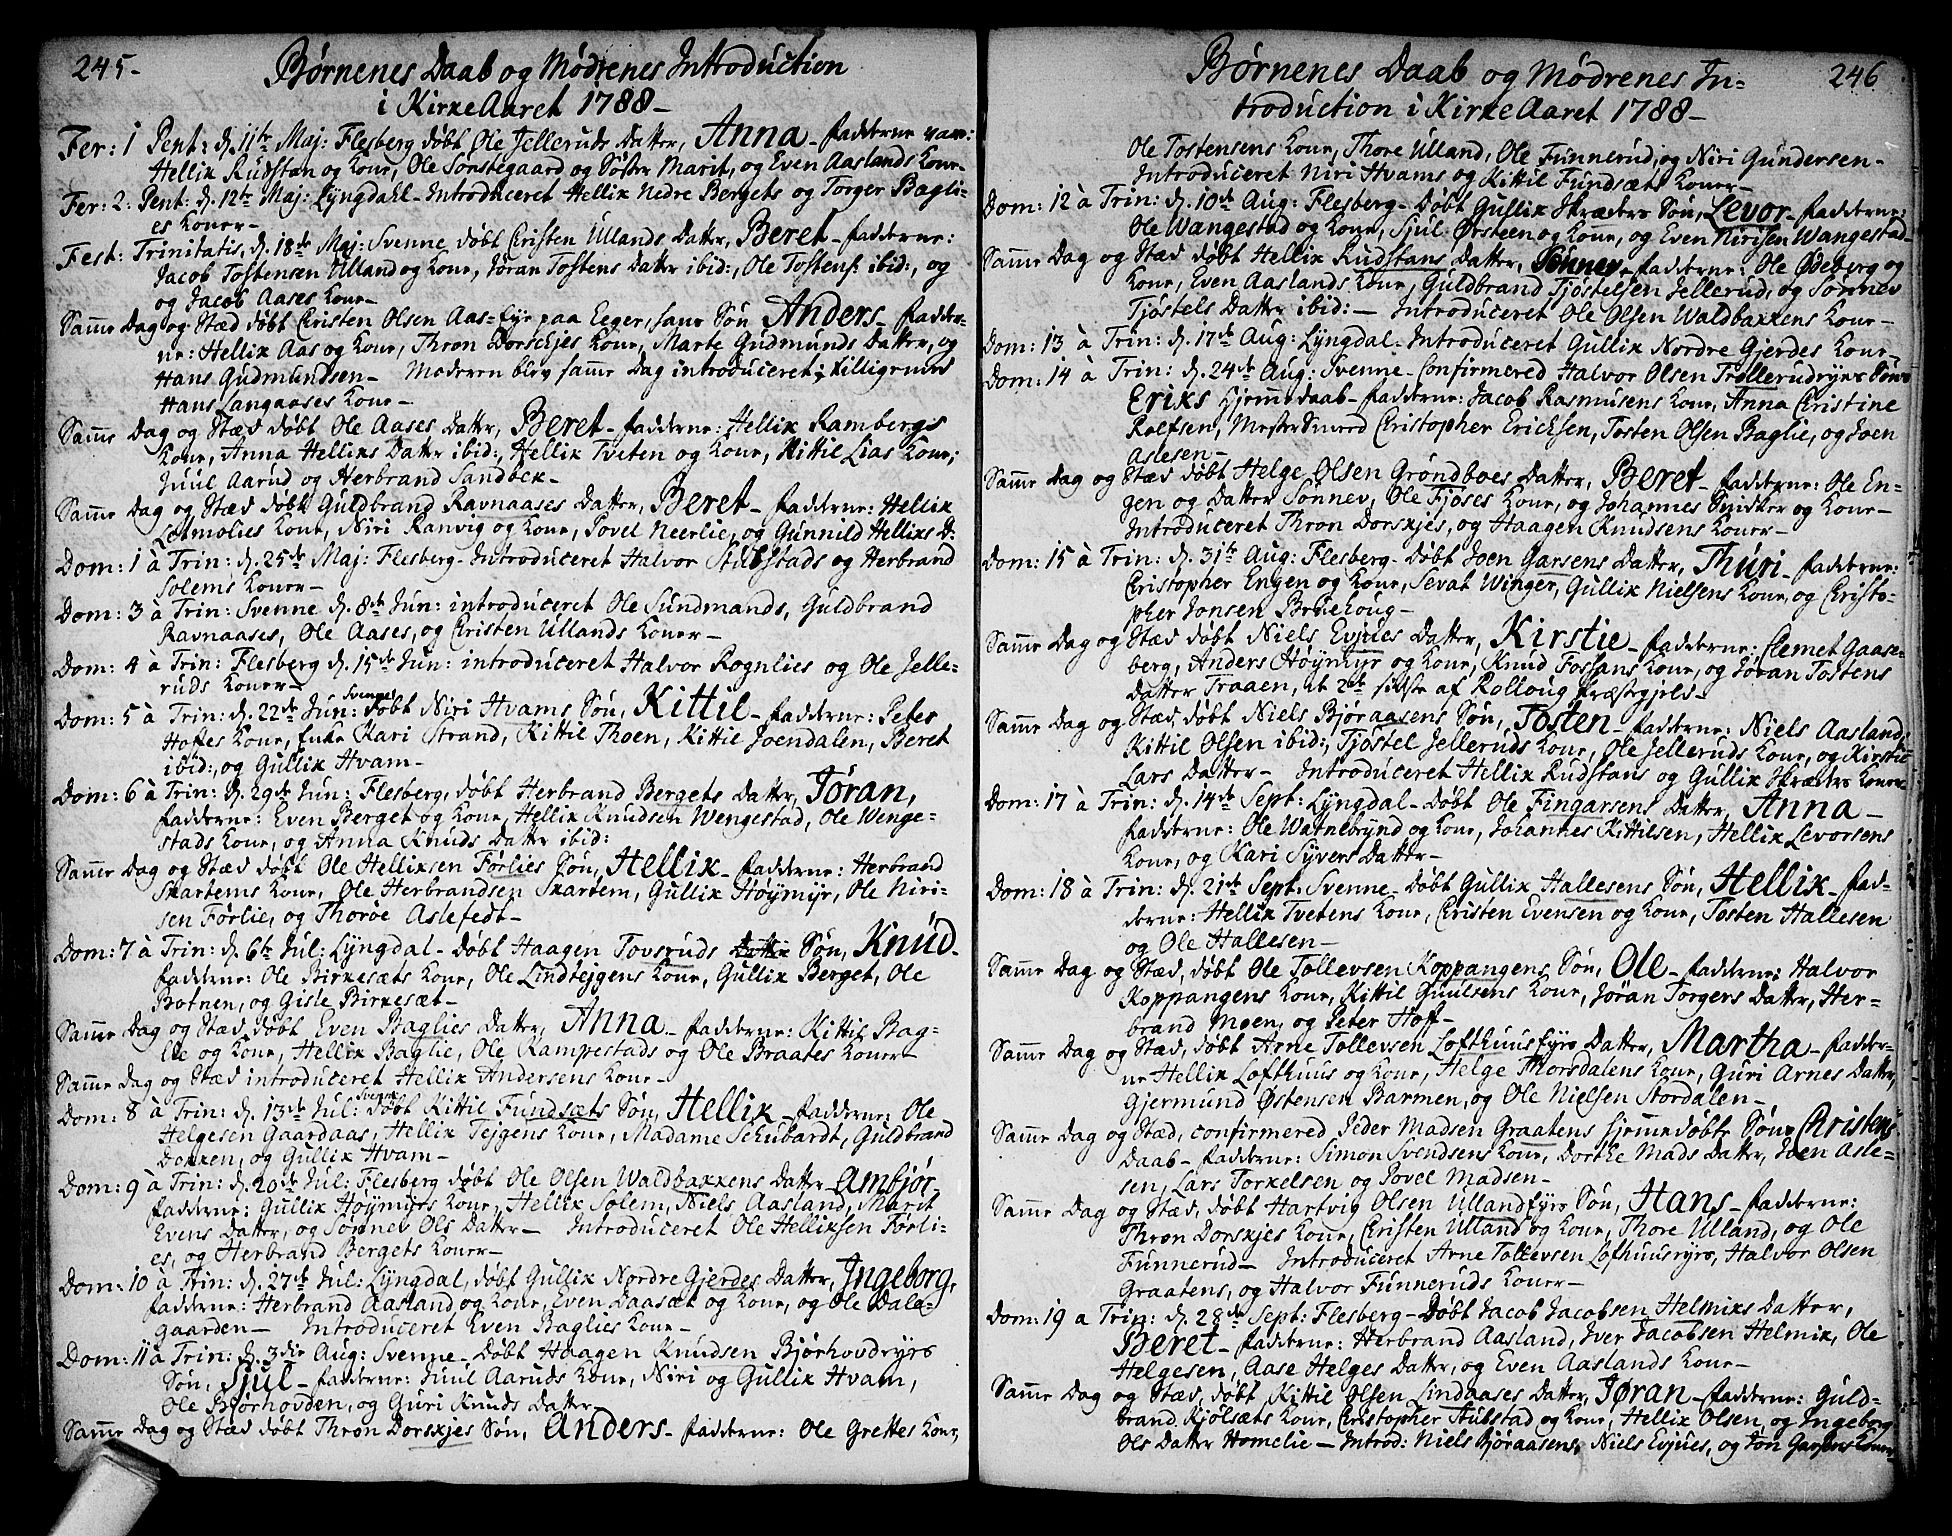 245.
Børnenes Daab og Mødrenes Introduction
i KirkeAaret 1788
Fer: 1 Pent: d. 11te Maj: Flesberg døbt Ole Jelleruds Datter, Anna - fadderne vare:
Hellik Rudstan og Kone, Ole Sønstegaard og Søster Marit, og Even Aaslands Kone
Fer: 2. Pent: d. 12te Maj: Lyngdahl - Introduceret Hellik Nedre Bergets og Torger Bagli-
es Koner -
Fest: Trinitatis, d. 18de Maj: Svenne døbt Christen Ullands Datter, Beret - fadderne:
Jacob Tostensen Ulland og Kone, Jøran Tostens Datter ibid:, Ole Tostens: ibid:, og
og Jacob Aases Kone -
Samme Dag og Stæd døbt Christen Olsen Aas-Eje paa Eeger, hans Søn Anders - fadder-
ne: Hellik Aas og Kone, Thron Dorskjes Kone, Marte Gudmunds Datter, og
Hans Gudmundsen - Moderen blev samme Dag introduceret; Killigemed
Hans Langaases Kone -
Samme Dag og Stæd døbt Ole Aases Datter, Beret - fadderne: Hellik Rambergs
Kone, Anna Helliks Datter ibid:, Hellik Tveten og Kone, Kittil Lias Kone,
Juul Aarud og Herbrand Sandbek -
Samme Dag og Stæd døbt Guldbrand Ravnaases Datter, Beret - fadderne: Hellik
Letmolies Kone, Niri Ranvig og Kone, Povel Neerlie, og Gunnild Helliks D:
Dom: 1 à Trin: d. 25de Maj: Flesberg - Introduceret Halvor Stubstads og Herbrand
Solems Koner -
Dom: 3 à Trin: Svenne d. 8de Jun: introduceret Ole Sundmands, Guldbrand
Ravnaases, Ole Aases, og Christen Ullands Koner -
Dom: 4 à Trin: Flesberg d. 15de Jun: introduceret Halvor Rognlies og Ole Jelle-
ruds Koner -
Dom: 5 à Trin: d. 22de Jun: Svenne døbt Niri Hvams Søn, Kittil - fadderne: Peter
Hoffes Kone, Enke Kari Strand, Kittil Thoen, Kittil Joendalen, Beret
ibid:, og Gullik Hvam -
Dom: 6 à Trin: d. 29de Jun: Flesberg, døbt Herbrand Bergets Datter, Jøran,
fadderne: Even Berget og Kone, Hellik Knudsen Wengestad, Ole Wenge-
stads Kone, og Anna Knuds Datter ibid:
Samme Dag og Stæd døbt Ole Helliksen Førlies Søn, Hellik - fadderne: Herbrand
Skartems Kone, Ole Herbrandsen Skartem, Gullik Høymyr, Ole Niri-
sen Førlie, og Thorøe Aslefedt -
Dom: 7 à Trin: d. 6te Jul: Lyngdal - Døbt Haagen Tovsruds Datter Søn, Knud -
fadderne: Ole Birkesæts Kone, Ole Lindtejgens Kone, Gullik Berget, Ole
Botnen, og Gisle Birkesæt -
Samme Dag og Stæd, døbt Even Baglies Datter, Anna - fadderne: Kittil Bag-
lie og Kone, Hellik Baglie, Ole Kampestads og Ole Braates Koner -
Samme Dag og Stæd introduceret Hellik Andersens Kone -
Dom: 8 à Trin: d. 13de Jul: Svenne døbt Kittil Fundsæts Søn, Hellik - fadderne: Ole
Helgesen Gaardaas, Hellik Tejgens Kone, Madame Schubardt, Guldbrand
Dokken, og Gullik Hvam -
Dom: 9 à Trin: d. 20de Jul: Flesberg døbt Ole Olsen Waldbakkens Datter Ambjør -
fadderne: Gullik Høymyrs Kone, Hellik Solem, Niels Aasland, Marit
Evens Datter, og Sønnev Ols Datter - Introduceret Ole Helliksen Førli-
es, og Herbrand Bergets Koner -
Dom: 10 à Trin: d. 27de Jul: Lyngdal, døbt Gullik Nordre Gjerdes Datter, Ingeborg,
fadderne: Herbrand Aasland og Kone, Even Daasæt og Kone, og Ole Dala-
gaarden - Introduceret Even Baglies Kone -
Dom: 11 à Trin: d. 3die Aug: Svenne - Døbt Haagen Knudsen Bjørhovdryrs
Søn, Sjul - fadderne: Juul Aaruds Kone, Niri og Gullik Hvam,
Ole Bjørhovden, og Guri Knuds Datter -
Samme Dag og Stæd døbt Thron Dorskjes Søn, Anders - fadderne: Ole Grettes Kone,
246
Børnenes Daab og Mødrenes In-
troduction i KirkeAaret 1788 -
Ole Tostensens Kone, Thore Ulland, Ole Funnerud, og Niri Gundersen -
Introduceret Niri Hvams og Kittil Fundsæts Koner -
Dom: 12 à Trin: d. 10de Aug: Flesberg - Døbt Gullik Skræders Søn, Levor - fadderne:
Ole Wangestad og Kone, Sjul Ørsteen og Kone, og Even Nirisen Wangestad -
Samme Dag og Stæd døbt Hellik Rudstans Datter, Sønnev - fadderne: Ole Ødeberg og
Kone, Even Aaslands Kone, Guldbrand Tjøstelsen Jellerud, og Sønnev
Tjøstels Datter ibid: - Introduceret Ole Olsen Waldbakkens Kone -
Dom: 13 à Trin: d. 17de Aug: Lyngdal - Introduceret Gullik Nordre Gjerdes Kone -
Dom: 14 à Trin: d. 24de Aug: Svenne - Confirmered Halvor Olsen Trollerudryrs Søns
Eriks Hjemedaab - fadderne: Jacob Rasmusens Kone, Anna Christine
Rolfsen, Mester Smed Christopher Ericksen, Tosten Olsen Baglie, og Joen
Aslesen -
Samme Dag og Stæd døbt Helge Olsen Grøndboes Datter, Beret - fadderne: Ole En-
gen og Datter Sønnev, Ole Fjøses Kone, og Johannes Snidker og Kone -
Introduceret Thron Dorskjes, og Haagen Knudsens Koner -
Dom: 15 à Trin: d. 31te Aug: Flesberg - Døbt Joen Garsens Datter, Thuri - fadderne:
Christopher Engen og Kone, Sevat Winger, Gullik Nielsens Kone, og Christo-
pher Jonsen Bruehoug -
Samme Dag og Stæd døbt Niels Evjues Datter, Kirstie - fadderne: Clemet Gaase-
berg, Anders Høymyr og Kone, Knud Fossans Kone, og Jøran Tostens
Datter Traaen, de 2de sidste af Rolloug Præstegjeld -
Samme Dag og Stæd, døbt Niels Bjøraasens Søn, Tosten - fadderne: Niels Aasland,
Kittil Olsen ibid:, Tjøstel Jelleruds Kone, Ole Jelleruds Kone, og Kirstie
Lars Datter - Introduceret Hellik Rudstans og Gullik Skræders Koner
Dom: 17 à Trin: d. 14de Sept: Lyngdal - Døbt Ole Fingarsens Datter, Anna -
fadderne: Ole Watnebrynd og Kone, Johannes Kittilsen, Hellik Levorsens
Kone, og Kari Syvers Datter -
Dom: 18 à Trin: d. 21de Sept: Svenne - Døbt Gullik Hallesens Søn, Hellik - fad-
derne: Hellik Tvetens Kone, Christen Evensen og Kone, Tosten Hallesen
og Ole Hallesen -
Samme Dag og Stæd, døbt Ole Tollevsen Koppangens Søn, Ole - fadderne: Halvor
Koppangens Kone, Kittil Guulsens Kone, Jøran Torgers Datter, Her-
brand Moen, og Peter Hoff -
Samme Dag og Stæd, døbt Arne Tollevsen Lofthuusryrs Datter, Martha - fadder-
ne Hellik Lofthuus og Kone, Helge Thorsdalens Kone, Guri Arnes Datter,
Gjermund Østensen Barmen, og Ole Nielsen Stordalen -
Samme Dag og Stæd, confirmered Peder Madsen Graatens hjemedøbte Søns Christens
Daab - fadderne: Simon Svendsens Kone, Dorthe Mads Datter, Joen Asle-
sen, Lars Torkelsen og Povel Madsen -
Samme Dag og Stæd, døbt Hartvig Olsen Ullandryrs Søn, Hans - fadderne:
Thron Dorskjes Kone, Christen Ulland og Kone, Thore Ulland, og Ole
Funnerud - Introduceret Arne Tollevsen Lofthuusryrs, Halvor Olsen
Graatens, og Halvor Funneruds Koner -
Dom: 19 a Trin: d. 28de Sept: Flesberg - Døbt Jacob Jacobsen Helmiks Datter,
Beret - fadderne: Herbrand Aasland, Iver Jacobsen Helmik, Ole
Helgesen, Aase Helges Datter, og Even Aaslands Kone -
Samme Dag og Stæd, døbt Kittil Olsen Lindaases Datter, Jøran - fadderne: Guld-
brand Kjølsæts Kone, Christopher Stubstad og Kone, Hellik Olsen, og Ingeborg
Ols Datter Homelie - Introd: Niels Bjøraasens, Niels Evjues, og Jon Garsens Koner